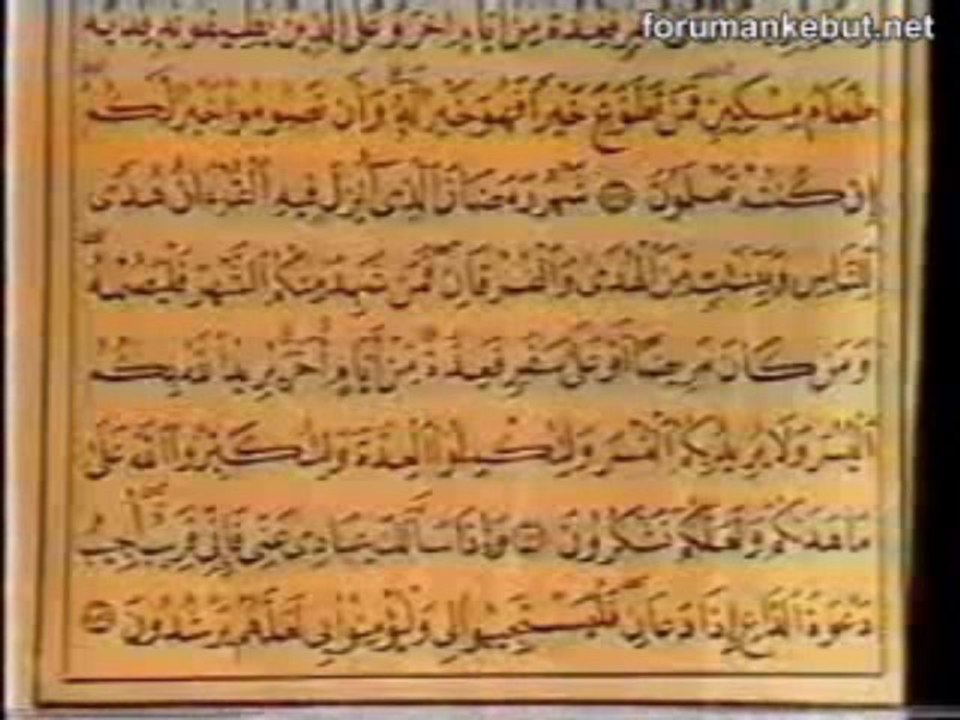 forumankebut.net
فَعِدَّةٌ مِنْ أَيَّامٍ أُخَرَ وَعَلَى الَّذِينَ يُطِيقُونَهُ فِدْيَةٌ
طَعَامُ مِسْكِينٍ فَمَنْ تَطَوَّعَ خَيْرًا فَهُوَ خَيْرٌ لَهُ وَأَنْ تَصُومُوا خَيْرٌ لَكُمْ
إِنْ كُنْتُمْ تَعْلَمُونَ ۝ شَهْرُ رَمَضَانَ الَّذِي أُنْزِلَ فِيهِ الْقُرْءَانُ هُدًى
لِلنَّاسِ وَبَيِّنَتٍ مِنَ الْهُدَى وَالْفُرْقَانِ فَمَنْ شَهِدَ مِنْكُمُ الشَّهْرَ فَلْيَصُمْهُ
وَمَنْ كَانَ مَرِيضًا أَوْ عَلَى سَفَرٍ فَعِدَّةٌ مِنْ أَيَّامٍ أُخَرَ يُرِيدُ اللَّهُ بِكُمُ
الْيُسْرَ وَلَا يُرِيدُ بِكُمُ الْعُسْرَ وَلِتُكْمِلُوا الْعِدَّةَ وَلِتُكَبِّرُوا اللَّهَ عَلَى
مَا هَدَىكُمْ وَلَعَلَّكُمْ تَشْكُرُونَ ۝ وَإِذَا سَأَلَكَ عِبَادِي عَنِّي فَإِنِّي قَرِيبٌ أُجِيبُ
دَعْوَةَ الدَّاعِ إِذَا دَعَانِ فَلْيَسْتَجِيبُوا لِي وَلْيُؤْمِنُوا بِي لَعَلَّهُمْ يَرْشُدُونَ ۝